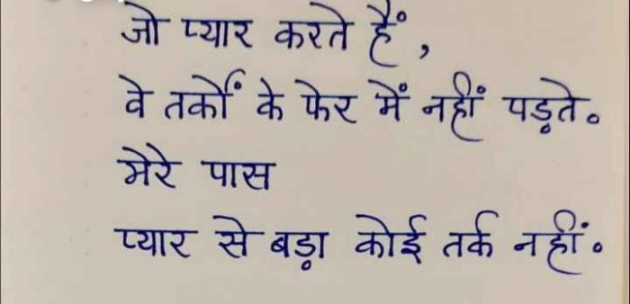 जो प्यार करते हैं,
वे तर्कों के फेर में नहीं पड़ते。
मेरे पास
प्यार से बड़ा कोई तर्क नहीं。